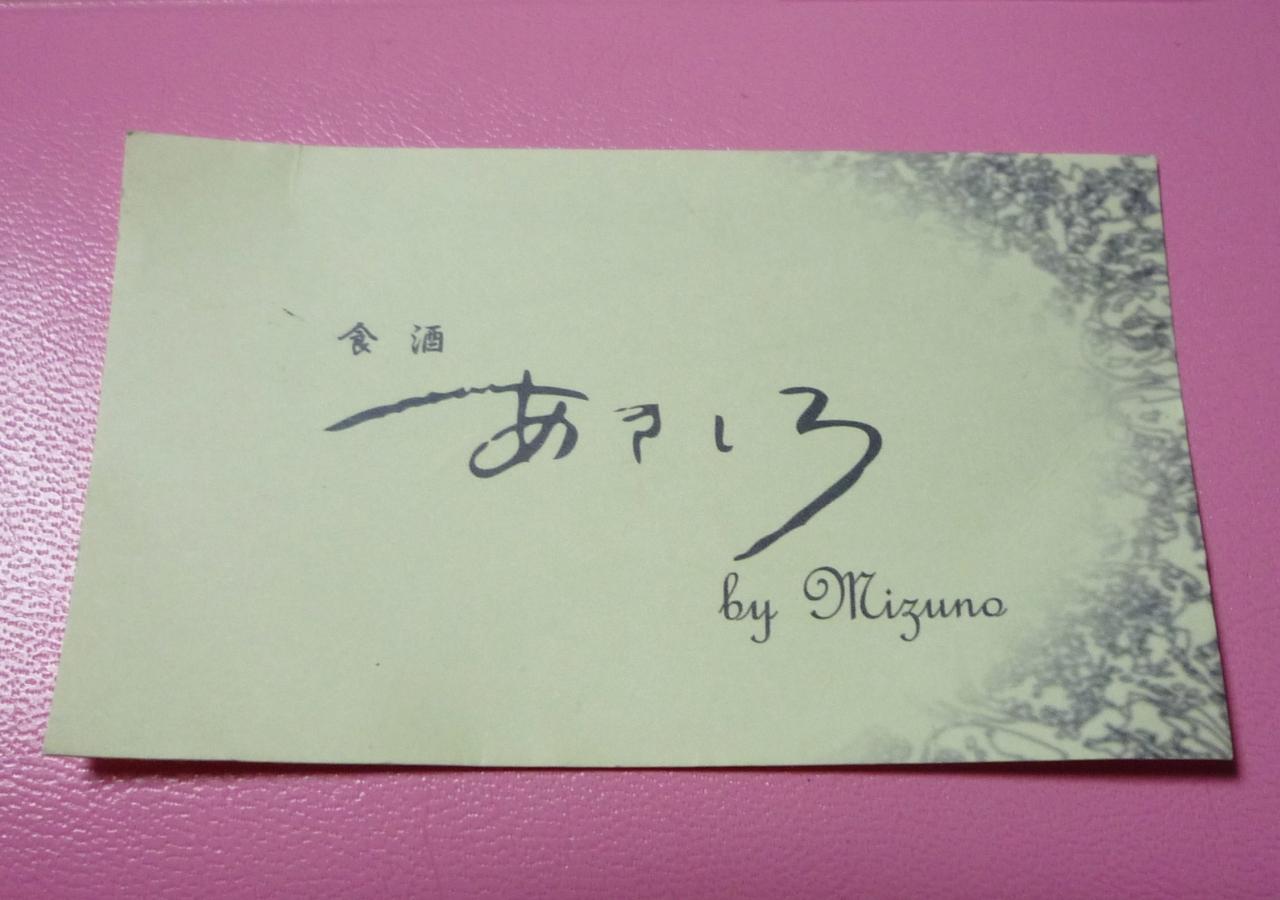 食 酒
あきしろ
by Mizuno